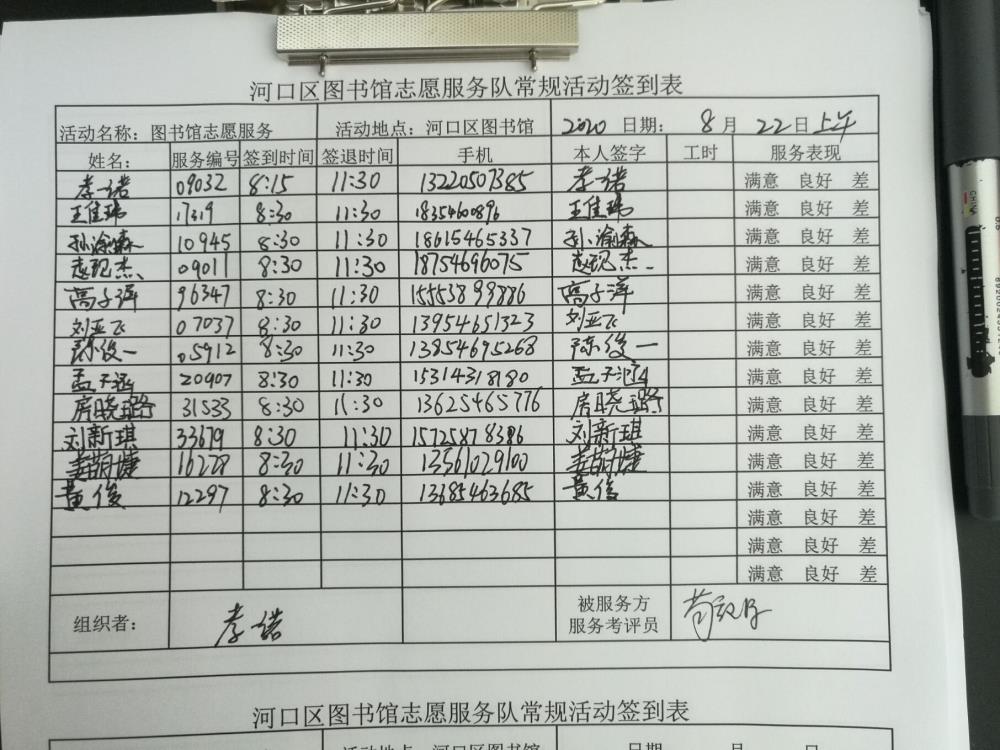 河口区图书馆志愿服务队常规活动签到表
活动名称：图书馆志愿服务 活动地点：河口区图书馆 2020 日期： 8月 22日上午
姓名： 服务编号 签到时间 签退时间 手机 本人签字 工时 服务表现
09032 8:15 11:30 13220507385 满意 良好 差
王佳玮 17319 8:30 11:30 18354600896 王佳玮 满意 良好 差
孙渝森 10945 8:30 11:30 18615465337 孙渝森 满意 良好 差
09011 8:30 11:30 18754696075 满意 良好 差
高子洋 96347 8:30 11:30 15553899886 高子洋 满意 良好 差
刘亚飞 07037 8:30 11:30 13954651323 刘亚飞 满意 良好 差
陈俊一 05912 8:30 11:30 13854695268 陈俊一 满意 良好 差
孟子涵 20907 8:30 11:30 15314318180 孟子涵 满意 良好 差
房晓璐 31533 8:30 11:30 13625465776 房晓璐 满意 良好 差
刘新琪 33679 8:30 11:30 15725878386 刘新琪 满意 良好 差
姜萌婕 16278 8:30 11:30 13561029100 姜萌婕 满意 良好 差
黄俊 12297 8:30 11:30 13685463685 黄俊 满意 良好 差
满意 良好 差
满意 良好 差
满意 良好 差
组织者： 被服务方
服务考评员
河口区图书馆志愿服务队常规活动签到表